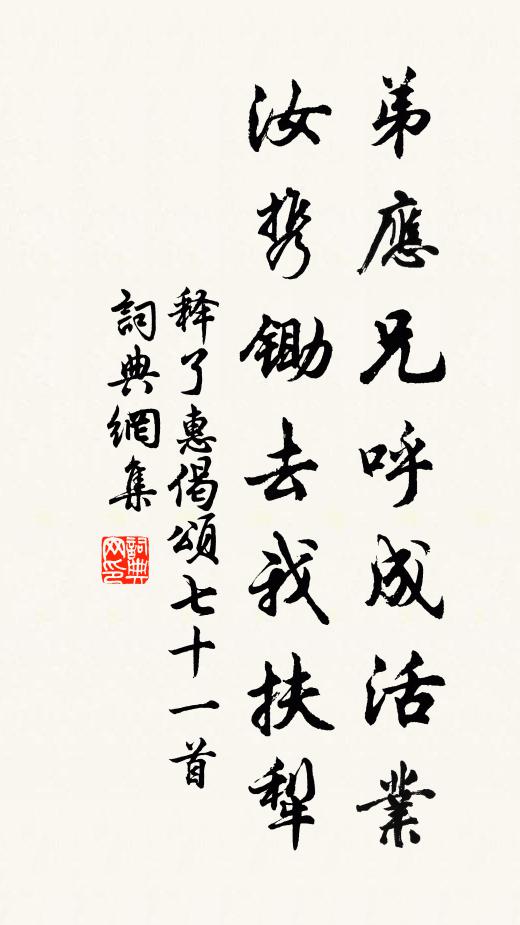 弟應兄呼成活業
汝携鋤去我扶犁
释了惠偈頌七十一首
詞典網集
詞典網印